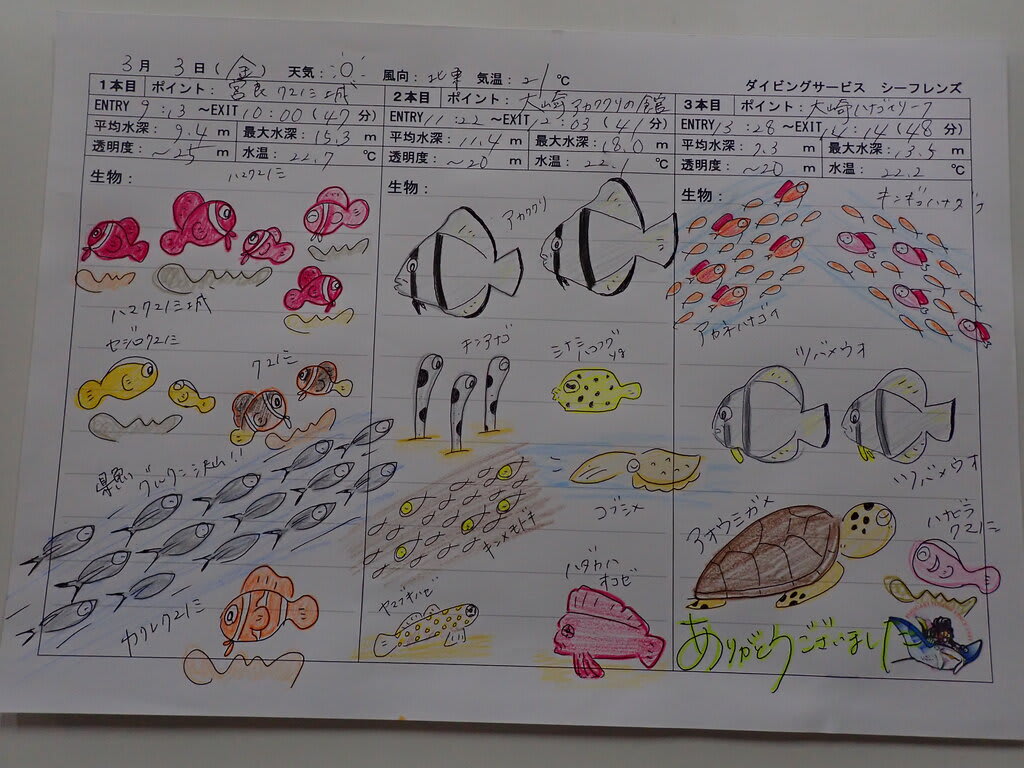 3月 3日(金) 天気: 風向:北東 気温:21℃
ダイビングサービス シーフレンズ
1本目 ポイント: 宮良クマノミ城
ENTRY 9:13 ~EXIT 10:00 (47分)
平均水深: 9.4 m 最大水深: 15.3 m
透明度: ~25 m 水温: 22.7 ℃
生物:
ハマクマノミ
ハマクマノミ城
セジロクマノミ
クマノミ
県魚 グルクン 沢山!!
カクレクマノミ
2本目 ポイント: 大崎アカククリの館
ENTRY 11:22 ~EXIT 12:03 (41分)
平均水深: 11.4 m 最大水深: 18.0 m
透明度: ~20 m 水温: 22.1 ℃
生物:
アカククリ
チンアナゴ
ミナミハコフグ
コブシメ
キンメモドキ
ヤマブキハゼ
ハダカハオコゼ
3本目 ポイント: 大崎ハナゴイリーフ
ENTRY 13:28 ~EXIT 14:14 (48分)
平均水深: 7.3 m 最大水深: 13.5 m
透明度: ~20 m 水温: 22.2 ℃
生物:
キンギョハナダイ
アカネハナゴイ
ツバメウオ
ツバメウオ
アオウミガメ
ハナビラ
クマノミ
ありがとうございました